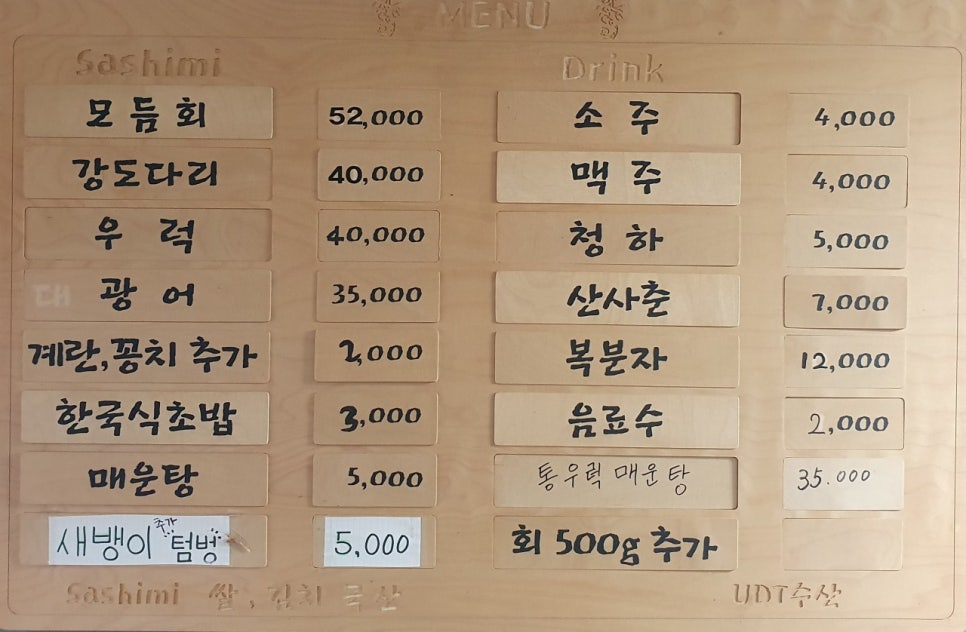 MENU
Sashimi
모듬회 52,000
강도다리 40,000
우럭 40,000
대광어 35,000
계란,꽁치 추가 2,000
한국식초밥 3,000
매운탕 5,000
새뱅이 추가 텀벙 5,000
Drink
소주 4,000
맥주 4,000
청하 5,000
산사춘 7,000
복분자 12,000
음료수 2,000
통우럭 매운탕 35.000
회 500g 추가
Sashimi 쌀, 김치 국산
UDT수산